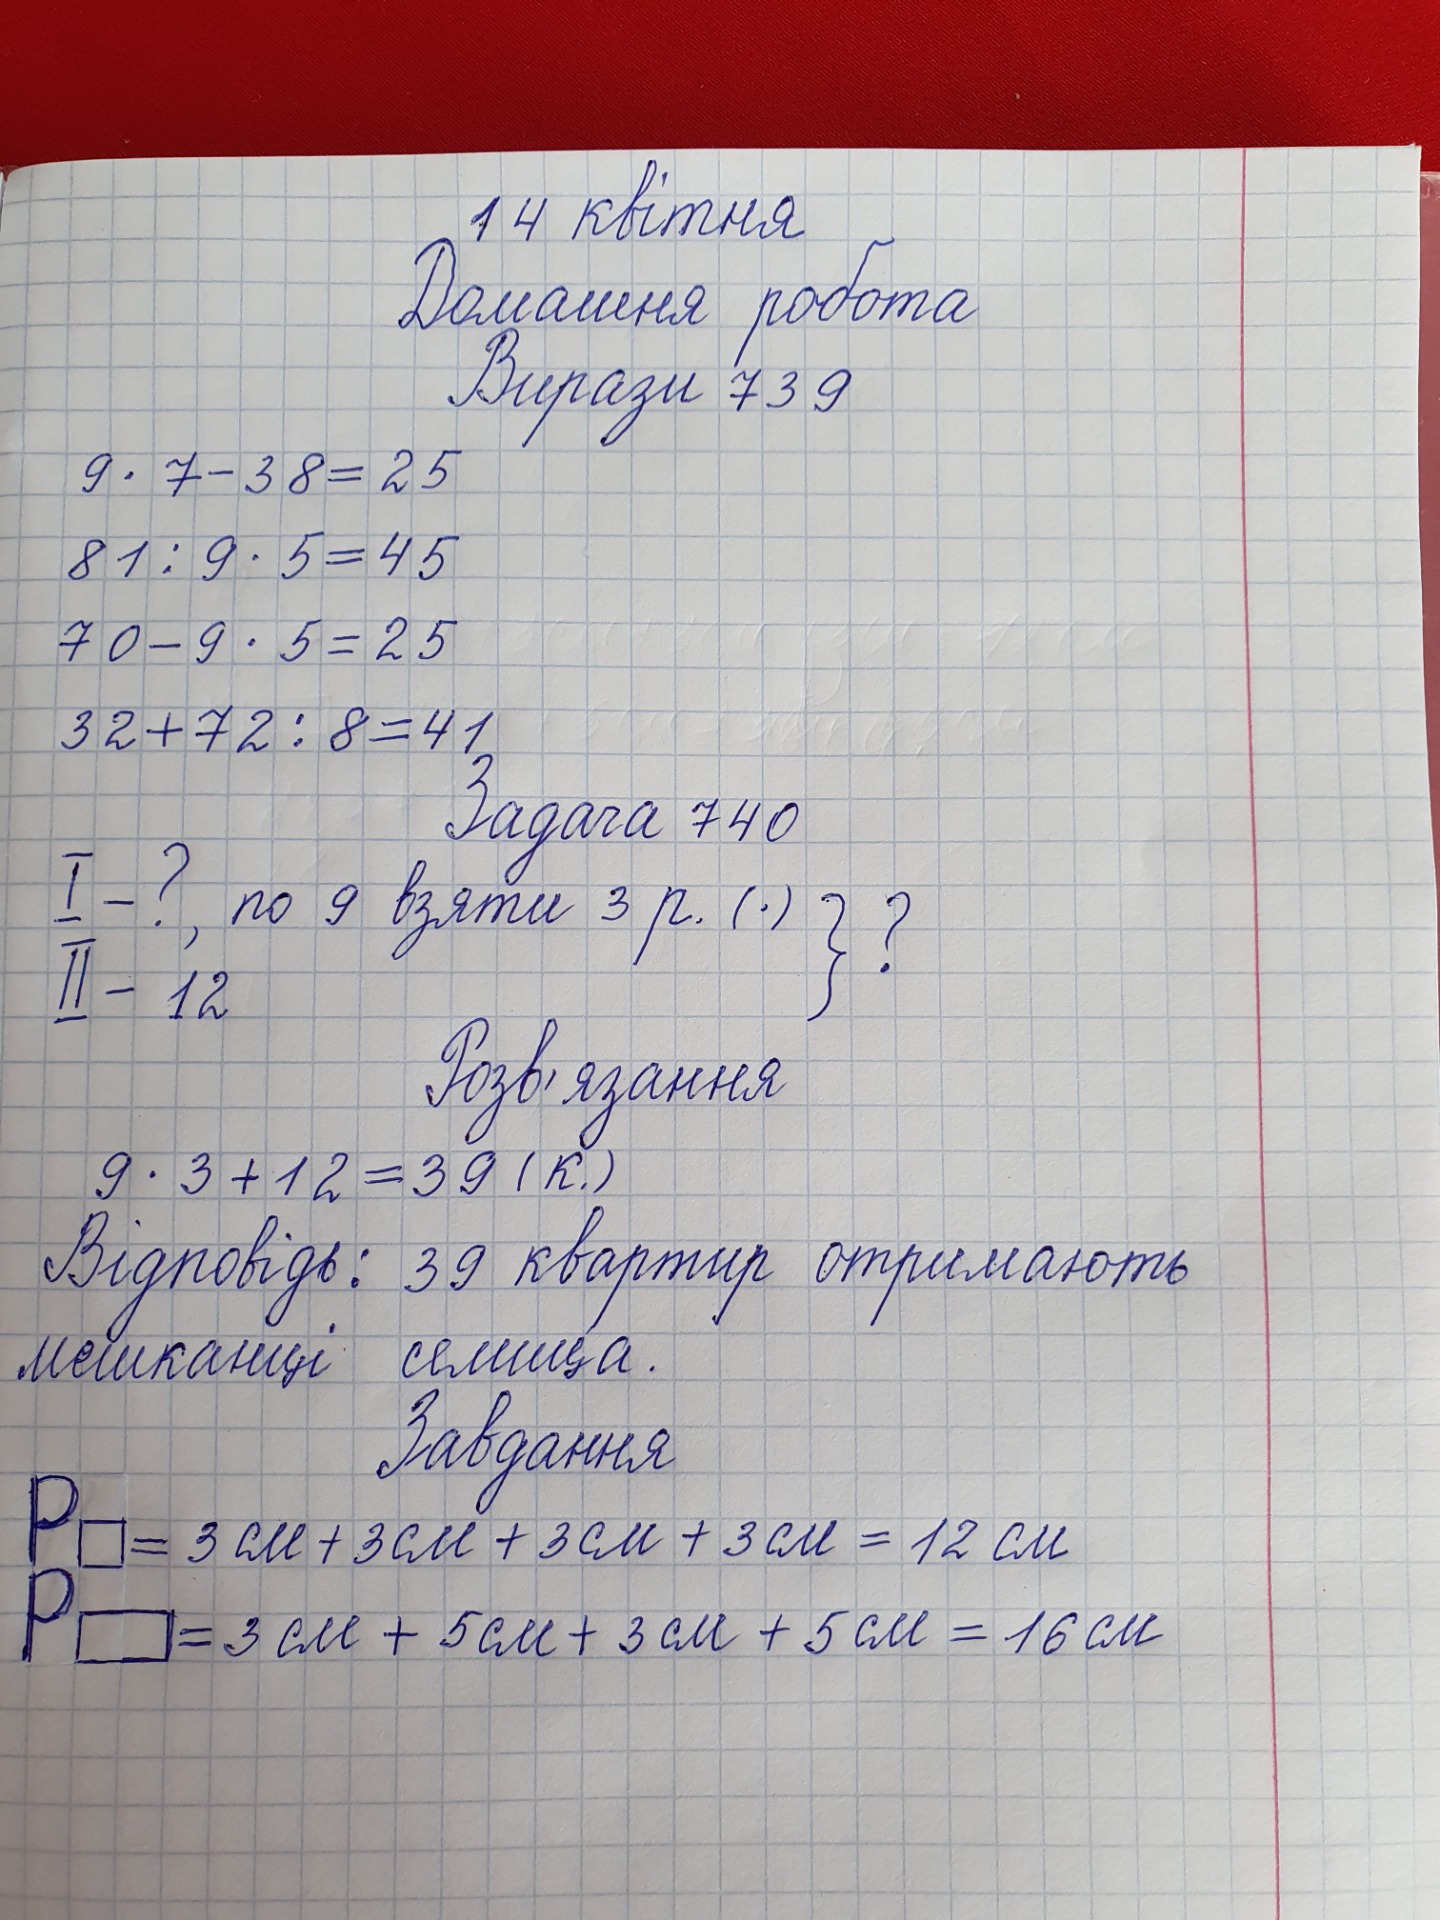 14 квітня
Домашня робота
Вирази 739
9 · 7 - 38 = 25
81 : 9 · 5 = 45
70 - 9 · 5 = 25
32 + 72 : 8 = 41
Задача 740
I - ?, по 9 взяти 3 р. (·) } ?
II - 12
Розв'язання
9 · 3 + 12 = 39 (к.)
Відповідь: 39 квартир отримають
мешканці селища.
Завдання
P□ = 3 см + 3 см + 3 см + 3 см = 12 см
P▭ = 3 см + 5 см + 3 см + 5 см = 16 см